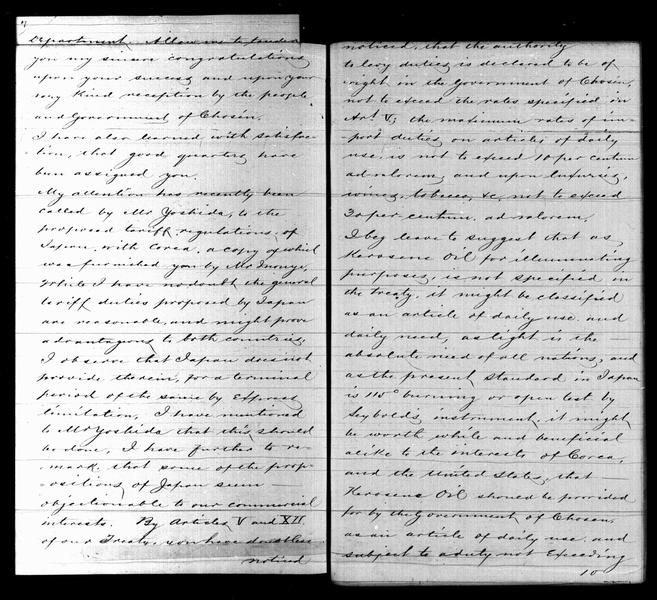 Department. Allow me to tender
you my sincere congratulations
upon your success and upon your
very kind reception by the people
and Government of Chosen.
I have also learned with satisfac-
tion, that good quarters have
been assigned you.
My attention has recently been
called by Mr Yoshida, to the
proposed tariff regulations of
Japan with Corea, a copy of which
was furnished you by Mr Inouye,
while I have no doubt the general
tariff duties proposed by Japan
are reasonable, and might prove
advantagous to both countries,
I observe that Japan does not
provide therein, for a terminal
period of the same by Express
limitation, I have mentioned
to Mr Yoshida that this should
be done, I have further to re-
mark, that some of the prop-
ositions of Japan seem
objectionable to our commercial
interests. By Articles V and XII
of our Treaty, you have doubtless
noticed
noticed, that the authority
to levy duties is declared to be of
right in the Government of Chosen,
not to exceed the rates specified in
Art V; the maximum rates of im-
port duties on articles of daily
use, is not to exceed 10 per centum
ad valorem, and upon luxuries,
wines, tobacco, &c, not to exceed
30 per centum. ad valorem.
I beg leave to suggest that as
Kerosene Oil for illuminating
purposes, is not specified in
the Treaty, it might be classified
as an article of daily use and
daily need, as light is the
absolute need of all nations, and
as the present standard in Japan
is 115° burning or open test by
Saybolds instrument, it might
be worth while and beneficial
alike to the interests of Corea,
and the United States, that
Kerosene Oil should be provided
for by the Government of Chosen,
as an article of daily use and
subject to a duty not Exceeding
10